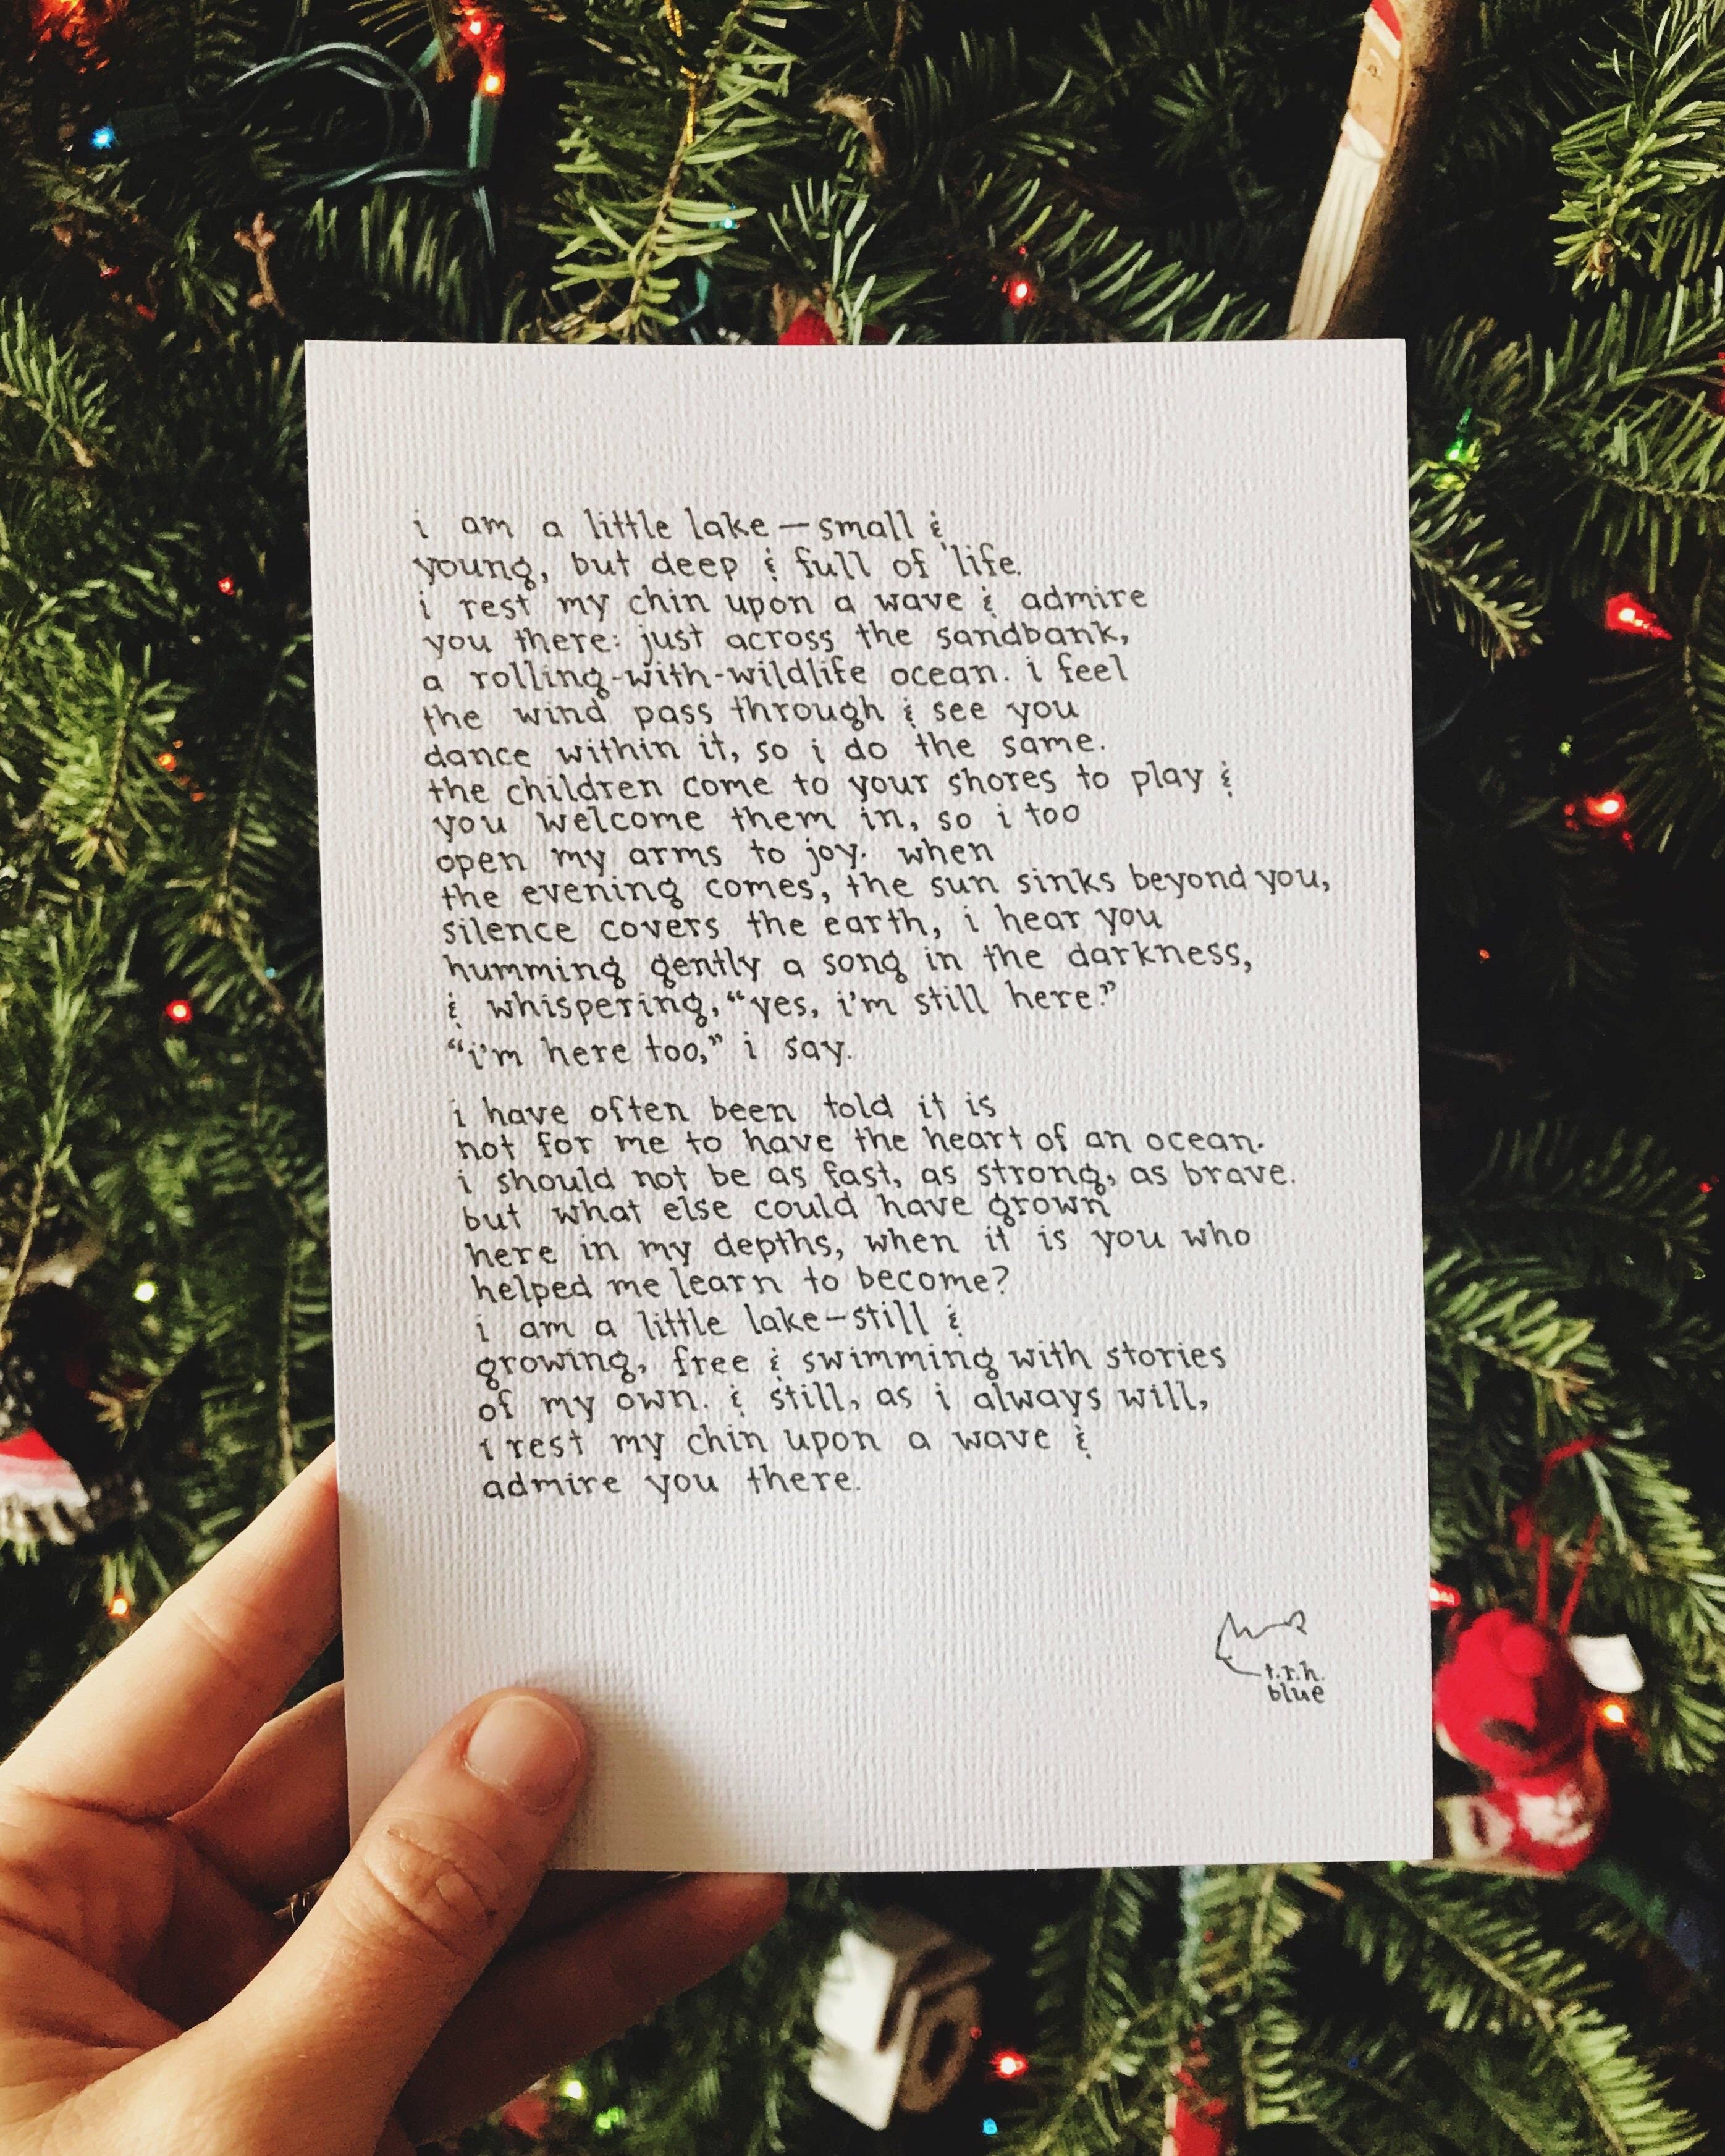 i am a little lake — small &
young, but deep & full of life.
i rest my chin upon a wave & admire
you there: just across the sandbank,
a rolling-with-wildlife ocean. i feel
the wind pass through & see you
dance within it, so i do the same.
the children come to your shores to play &
you welcome them in, so i too
open my arms to joy. when
the evening comes, the sun sinks beyond you,
silence covers the earth, i hear you
humming gently a song in the darkness,
& whispering, “yes, i'm still here.”
“i'm here too,” i say.
i have often been told it is
not for me to have the heart of an ocean.
i should not be as fast, as strong, as brave.
but what else could have grown
here in my depths, when it is you who
helped me learn to become?
i am a little lake — still &
growing, free & swimming with stories
of my own. & still, as i always will,
i rest my chin upon a wave &
admire you there.
t.r.h.
blue